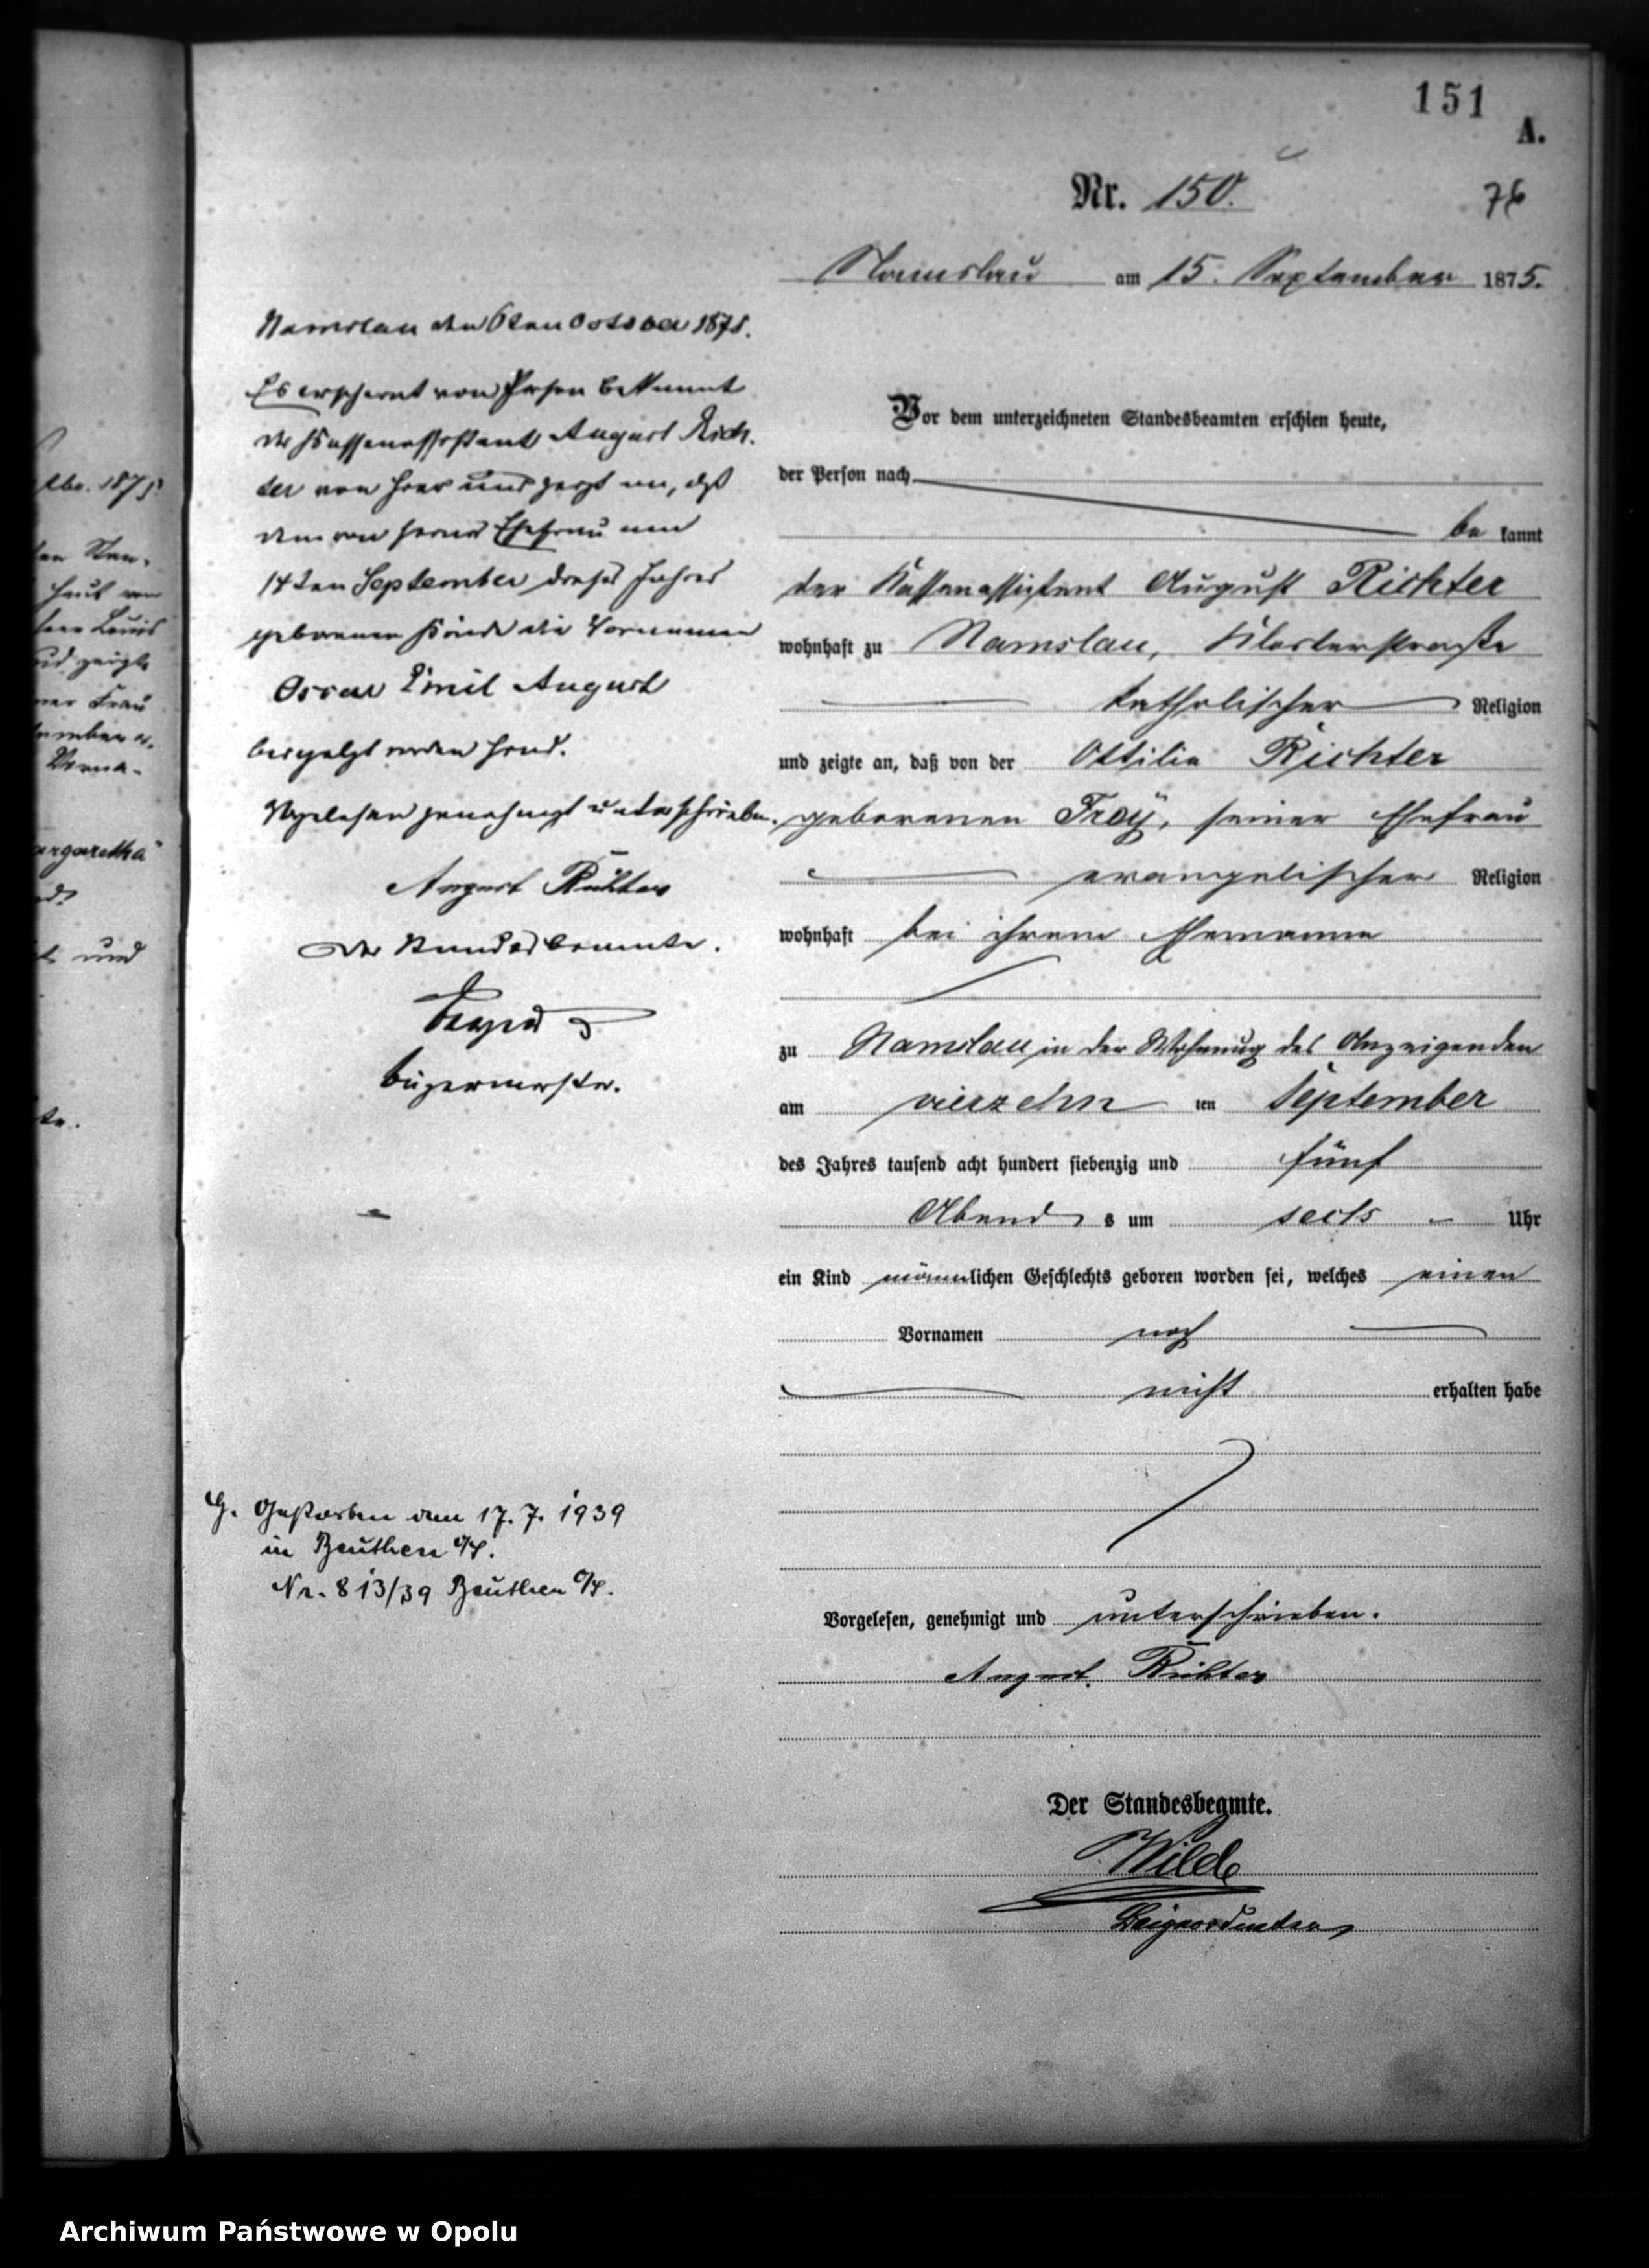 151
A.
Nr. 150.
76
Namslau am 15. September 1875.
Vor dem unterzeichneten Standesbeamten erschien heute,
der Person nach
be kannt
der Kassenassistent August Richter
wohnhaft zu Namslau, Klosterstraße
katholischer Religion
und zeigte an, daß von der Ottilie Richter
geborenen Frey, seiner Ehefrau
evangelischer Religion
wohnhaft bei ihrem Ehemanne
zu Namslau in der Wohnung des Anzeigenden
am vierzehn ten September
des Jahres tausend acht hundert siebenzig und fünf
Abend s um sechs Uhr
ein Kind männlichen Geschlechts geboren worden sei, welches einen
Vornamen noch
nicht erhalten habe
Vorgelesen, genehmigt und unterschrieben.
August Richter
Der Standesbeamte.
Wilde
Beigeordneter
Namslau den 6ten October 1875.
Es erscheint von Person bekannt
der Kassenassistent August Rich-
ter von hier und zeigt an, daß
dem von seiner Ehefrau am
14ten September dieses Jahres
geborenen Kinde die Vornamen
Oscar Emil August
beigelegt worden sind.
Vorgelesen genehmigt unterschrieben.
August Richter
Der Standesbeamte.
Bürgermeister.
G. Gestorben am 17.7.1939
in Beuthen O/S.
Nr. 813/39 Beuthen O/S.
lbr. 1875
Louis
und zeigt
ner Frau
tember
argaretha
und
Archiwum Państwowe w Opolu